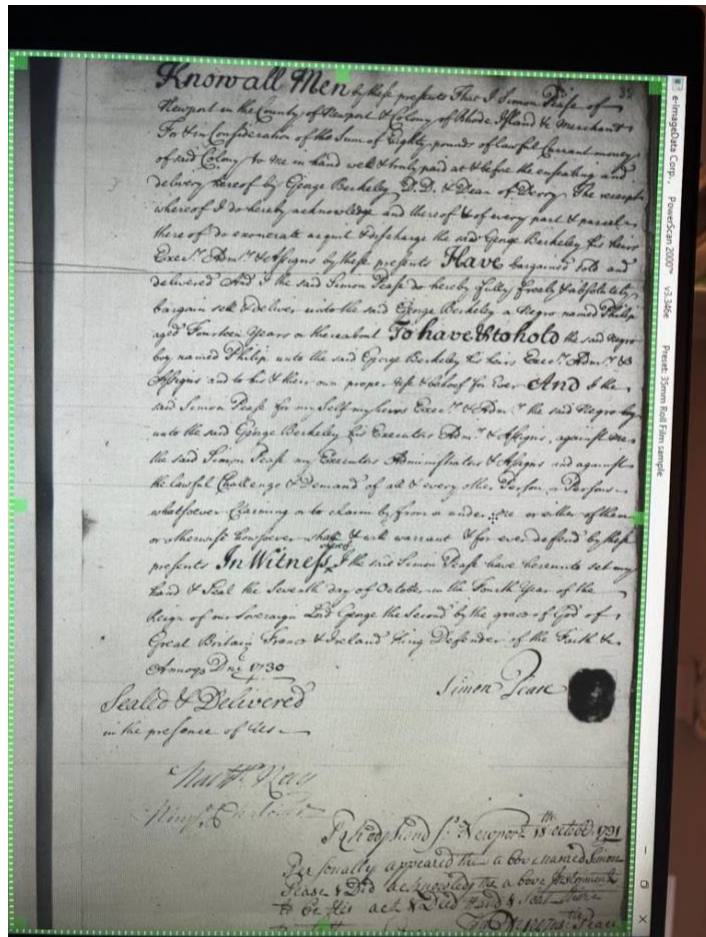 35
Know all Men by these presents That I Simon Pease of
Newport in the County of Newport & Colony of Rhode Island &c Merchant
For & in Consideration of the Sum of Eighty pounds of lawful Currant money
of said Colony to me in hand well & truly paid at & before the ensealing and
delivery hereof by George Berkeley D.D. & Dean of Derry the receipt
whereof I do hereby acknowledge and thereof & of every part & parcel
thereof do exonerate acquit & discharge the said George Berkeley his heirs
Execrs. Admrs. & Assigns by these presents Have bargained sold and
delivered And I the said Simon Pease do hereby fully freely & absolutely
bargain sell & deliver unto the said George Berkeley a Negro named Philip
aged Fourteen Years or thereabout To have & to hold the said Negro
boy named Philip unto the said George Berkeley his heirs Execrs. Admrs. &
Assigns and to his & their own proper use & behoof for Ever And I the
said Simon Pease for my Self my heirs Execrs. & Admrs. the said Negro boy
unto the said George Berkeley his Executors Admrs. & Assigns, against me
the said Simon Pease my Executors Administrators & Assigns and against
the lawful Challenge & Demand of all & every other Person or Persons
whatsoever Claiming or to claim by from or under me or either of them
or otherwise howsoever shall & will warrant & for ever defend by these
presents In Witness whereof I the said Simon Pease have hereunto set my
hand & Seal the Seventh day of October in the Fourth Year of the
Reign of our Sovereign Lord George the Second by the grace of God of
Great Britain France & Ireland King Defender of the Faith &c
Annoqe Dni 1730
Simon Pease
Sealed & Delivered
in the presence of Us
Nath. Kay
Newport 18th October 1731
Personally appeared the above named Simon
Pease & Did acknowledge the above Instrument
to be His act & Deed Hand & Seal
Pease
e-ImageData Corp., PowerScan 2000™ v3.346e Preset: 35mm Roll Film sample